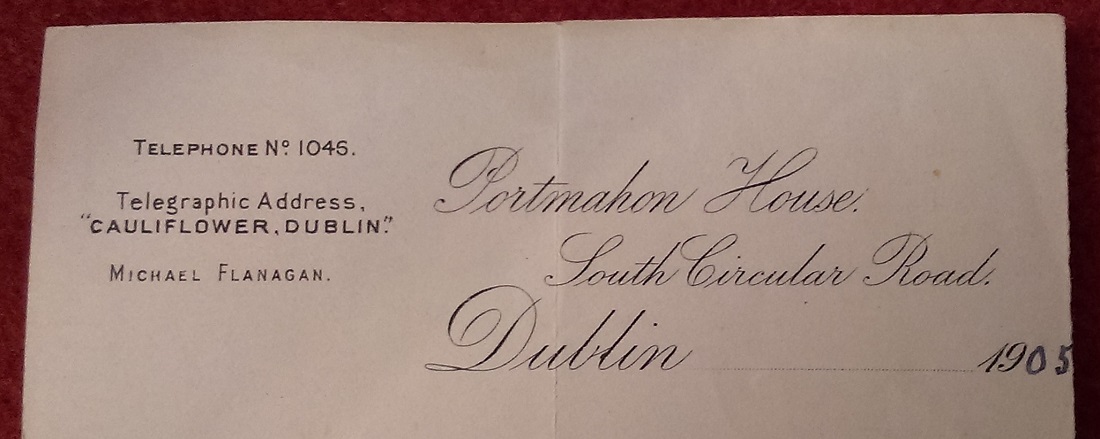 TELEPHONE Nº 1046.
Telegraphic Address,
"CAULIFLOWER, DUBLIN."
MICHAEL FLANAGAN.
Portmahon House.
South Circular Road.
Dublin 1905